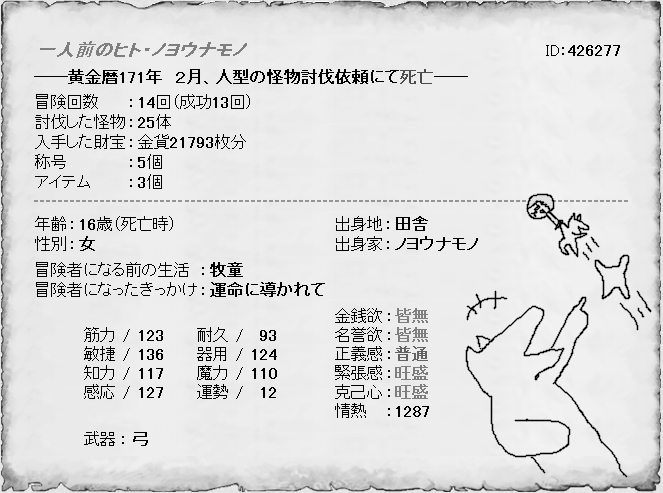 一人前のヒト・ノヨウナモノ ID：426277
――黄金暦171年 2月、人型の怪物討伐依頼にて死亡――
冒険回数 ：14回（成功13回）
討伐した怪物：25体
入手した財宝：金貨21793枚分
称号 ：5個
アイテム ：3個
年齢：16歳（死亡時） 出身地：田舎
性別：女 出身家：ノヨウナモノ
冒険者になる前の生活 ：牧童
冒険者になったきっかけ：運命に導かれて
金銭欲：皆無
筋力 / 123 耐久 / 93 名誉欲：皆無
敏捷 / 136 器用 / 124 正義感：普通
知力 / 117 魔力 / 110 緊張感：旺盛
感応 / 127 運勢 / 12 克己心：旺盛
情熱 ：1287
武器：弓